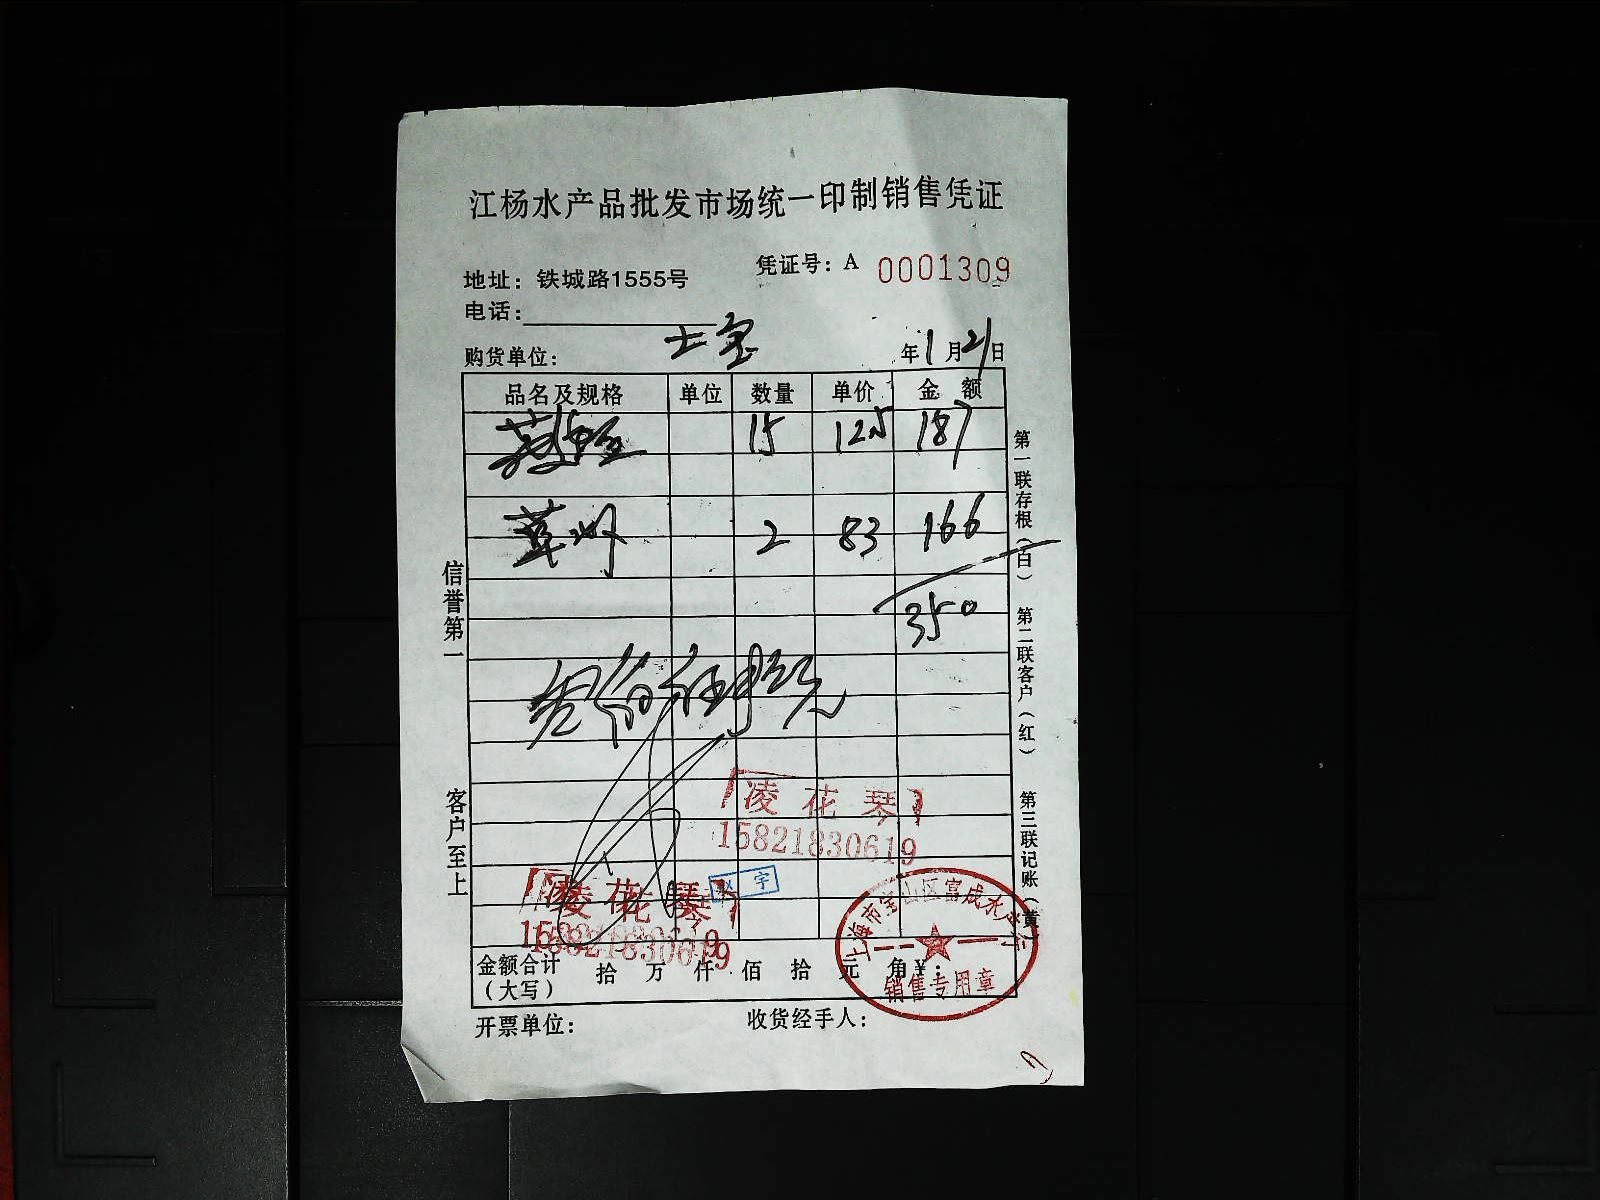 江杨水产品批发市场统一印制销售凭证
凭证号：A 0001309
地址：铁城路1555号
电话：
购货单位： 年1月21日
品名及规格 单位 数量 单价 金额
15 12.5 187
2 83 166
350
叁佰伍拾元
信誉第一
客户至上
第一联存根（白）
第二联客户（红）
第三联记账（黄）
凌花琴
15821830619
凌花琴
15821830619
宇
上海市宝山区富成水产行
销售专用章
金额合计（大写） 拾 万 仟 佰 拾 元 角 ¥：
开票单位： 收货经手人：